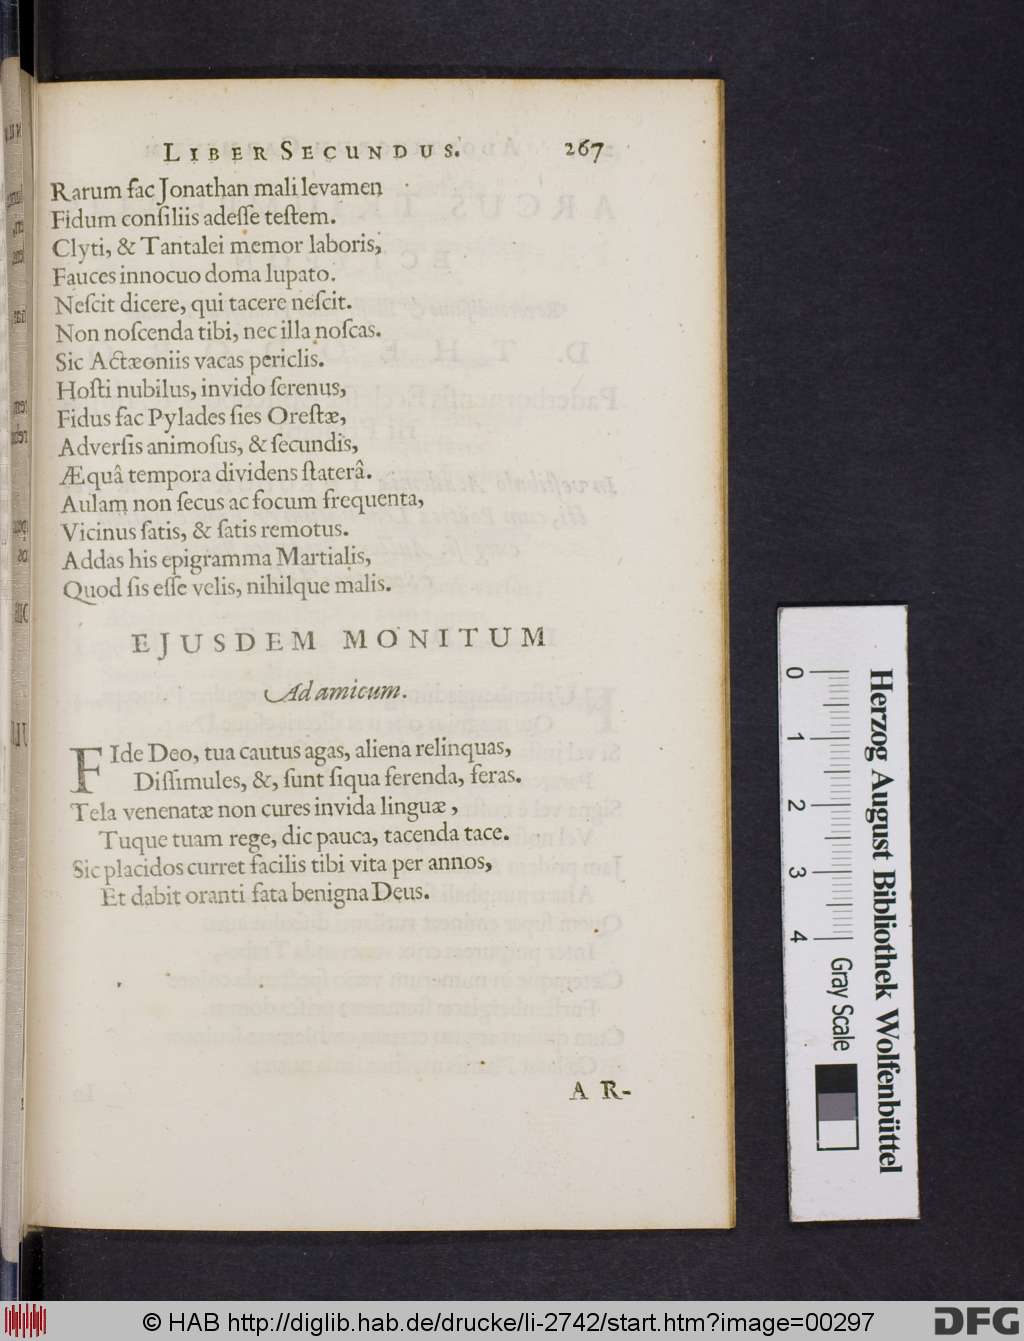 LIBER SECUNDUS. 267
Rarum fac Jonathan mali levamen
Fidum conſiliis adeſſe teſtem.
Clyti, & Tantalei memor laboris,
Fauces innocuo doma lupato.
Neſcit dicere, qui tacere neſcit.
Non noſcenda tibi, nec illa noſcas.
Sic Actæoniis vacas periclis.
Hoſti nubilus, invido ſerenus,
Fidus fac Pylades ſies Oreſtæ,
Adverſis animoſus, & ſecundis,
Æquâ tempora dividens ſtaterâ.
Aulam non ſecus ac focum frequenta,
Vicinus ſatis, & ſatis remotus.
Addas his epigramma Martialis,
Quod ſis eſſe velis, nihilque malis.
EJUSDEM MONITUM
Ad amicum.
FIde Deo, tua cautus agas, aliena relinquas,
Diſſimules, &, ſunt ſiqua ferenda, feras.
Tela venenatæ non cures invida linguæ,
Tuque tuam rege, dic pauca, tacenda tace.
Sic placidos curret facilis tibi vita per annos,
Et dabit oranti fata benigna Deus.
AR-
0 1 2 3 4
Herzog August Bibliothek Wolfenbüttel
Gray Scale
© HAB http://diglib.hab.de/drucke/li-2742/start.htm?image=00297
DFG